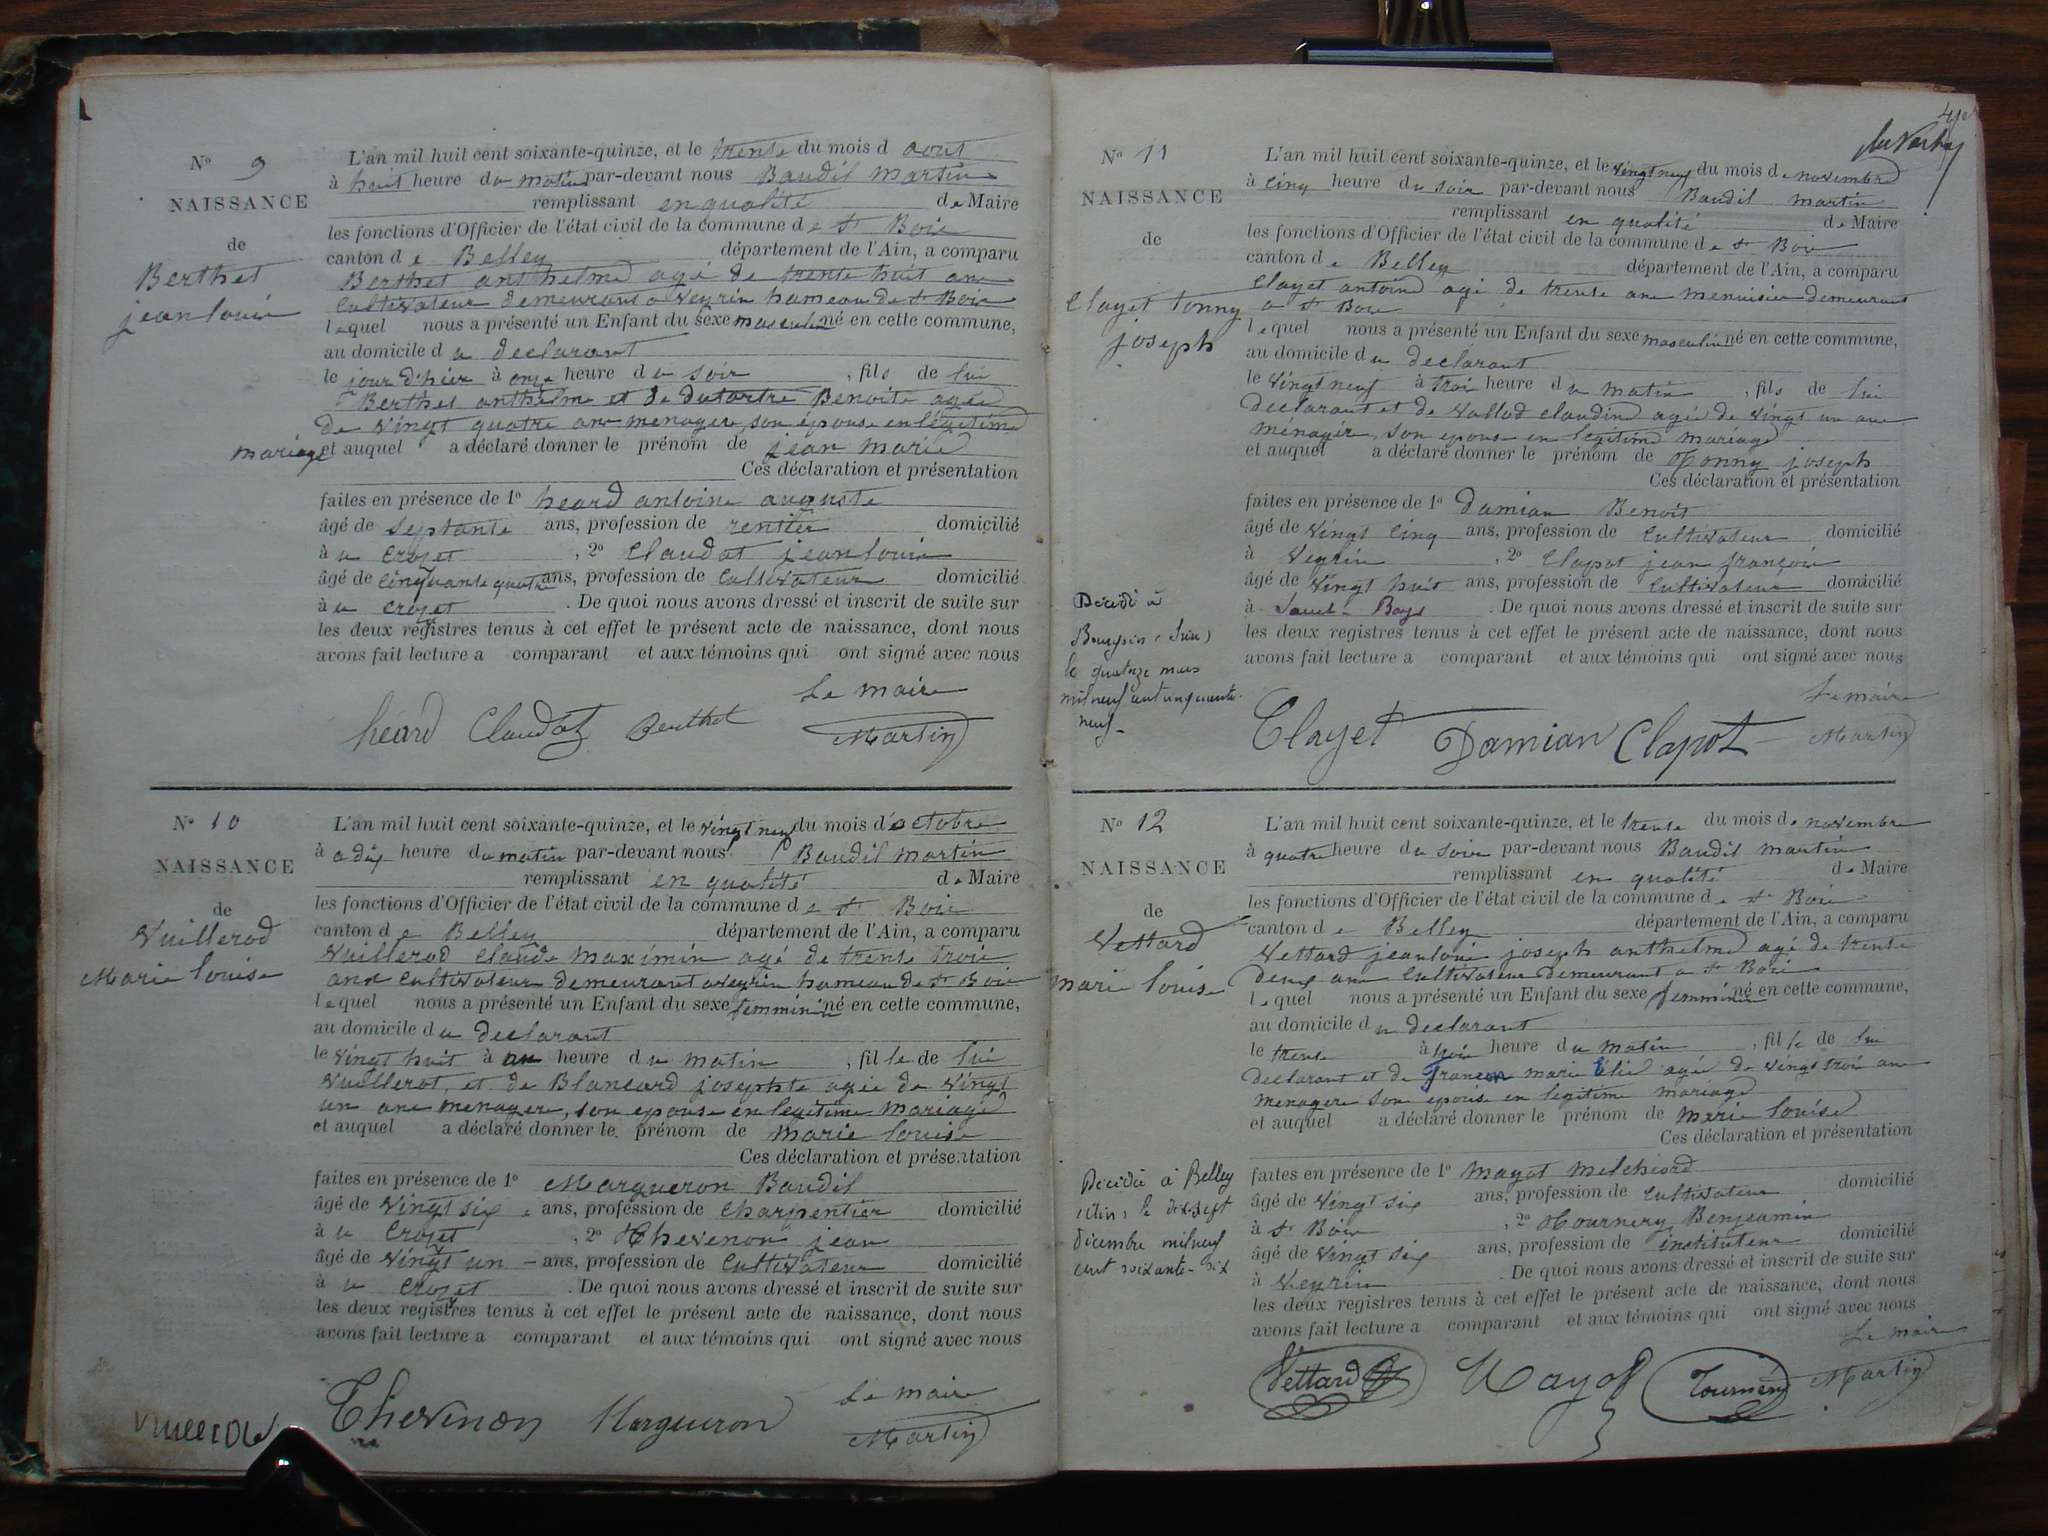 N° 9
NAISSANCE
de
Berthet
jean louis
L'an mil huit cent soixante-quinze, et le trente du mois d aout
à huit heure du matin par-devant nous Baudil martin
remplissant en qualité de Maire
les fonctions d'Officier de l'état civil de la commune de St Bois
canton de Belley département de l'Ain, a comparu
Berthet anthelme agé de trente huit ans
Cultivateur demeurant a Veyrin hameau de St Bois
lequel nous a présenté un Enfant du sexe masculin né en cette commune,
au domicile du declarant
le jour d'hier à onze heure du soir, fils de lui
Berthet anthelme et de dutartre Benoite agée
de vingt quatre ans menagere, son épouse en légitime
mariage et auquel a déclaré donner le prénom de jean marie
Ces déclaration et présentation
faites en présence de 1° heard antoine auguste
âgé de septante ans, profession de rentier domicilié
à u Crozet, 2° Claudat jean louis
âgé de cinquante quatre ans, profession de Cultivateur domicilié
à u Crozet. De quoi nous avons dressé et inscrit de suite sur
les deux registres tenus à cet effet le présent acte de naissance, dont nous
avons fait lecture a comparant et aux témoins qui ont signé avec nous
Le maire
heard Claudat Berthet Martin
N° 10
NAISSANCE
de
Vuillerod
Marie louise
L'an mil huit cent soixante-quinze, et le vingt neuf du mois d'octobre
à a dix heure du matin par-devant nous Baudil martin
remplissant en qualité de Maire
les fonctions d'Officier de l'état civil de la commune de St Bois
canton de Belley département de l'Ain, a comparu
Vuillerod Claude Maximin agé de trente trois
ans Cultivateur demeurant a Veyrin hameau de St Bois
lequel nous a présenté un Enfant du sexe femminin né en cette commune,
au domicile du declarant
le vingt huit à un heure du matin, fille de lui
Vuillerot, et de Blancard josephte agée de vingt
un ans menagere, son epouse en legitime mariage
et auquel a déclaré donner le prénom de marie louise
Ces déclaration et présentation
faites en présence de 1° Margueron Baudil
âgé de vingt six ans, profession de charpentier domicilié
à u Crozet, 2° Thevenon jean
âgé de vingt un - ans, profession de Cultivateur domicilié
à u Crozet. De quoi nous avons dressé et inscrit de suite sur
les deux registres tenus à cet effet le présent acte de naissance, dont nous
avons fait lecture a comparant et aux témoins qui ont signé avec nous
Le maire
Thevenon Margueron Martin
N° 11
NAISSANCE
de
Clayet tonny
joseph
L'an mil huit cent soixante-quinze, et le vingt neuf du mois de novembre
à cinq heure du soir par-devant nous Baudil martin
remplissant en qualité de Maire
les fonctions d'Officier de l'état civil de la commune de St Bois
canton de Belley département de l'Ain, a comparu
Clayet antoine agé de trente ans menuisier demeurant
a St Bois
lequel nous a présenté un Enfant du sexe masculin né en cette commune,
au domicile du declarant
le vingt neuf à trois heure du matin, fils de lui
declarant et de Vallod claudine agée de vingt un ans
ménagère, son epouse en legitime mariage
et auquel a déclaré donner le prénom de Tonny joseph
Ces déclaration et présentation
faites en présence de 1° Damian Benoit
âgé de vingt cinq ans, profession de Cultivateur domicilié
à Veyrin, 2° Clapot jean françois
âgé de vingt huit ans, profession de Cultivateur domicilié
à Saint-Bois. De quoi nous avons dressé et inscrit de suite sur
les deux registres tenus à cet effet le présent acte de naissance, dont nous
avons fait lecture a comparant et aux témoins qui ont signé avec nous
Décédé à
le quatorze mars
mil neuf cent cinquante-
neuf
Le maire
Clayet Damian Clapot Martin
N° 12
NAISSANCE
de
Vettard
marie louise
L'an mil huit cent soixante-quinze, et le trente du mois de novembre
à quatre heure du soir par-devant nous Baudil martin
remplissant en qualité de Maire
les fonctions d'Officier de l'état civil de la commune de St Bois
canton de Belley département de l'Ain, a comparu
Vettard jean louis joseph anthelme agé de trente
deux ans Cultivateur Demeurant a St Bois
lequel nous a présenté un Enfant du sexe femminin né en cette commune,
au domicile du declarant
le trente à trois heure du matin, fille de lui
declarant et de françon marie élie agée de vingt trois ans
menagere son epouse en legitime mariage
et auquel a déclaré donner le prénom de Marie louise
Ces déclaration et présentation
faites en présence de 1° mayot melchiord
âgé de vingt six ans, profession de Cultivateur domicilié
à St Bois, 2° Tournery Benjeamin
âgé de vingt six ans, profession de instituteur domicilié
à Veyrin. De quoi nous avons dressé et inscrit de suite sur
les deux registres tenus à cet effet le présent acte de naissance, dont nous
avons fait lecture a comparant et aux témoins qui ont signé avec nous
Décédée à Belley
(Ain) le dix-sept
décembre mil neuf
cent soixante-six
Le maire
Vettard Mayot Tournery Martin